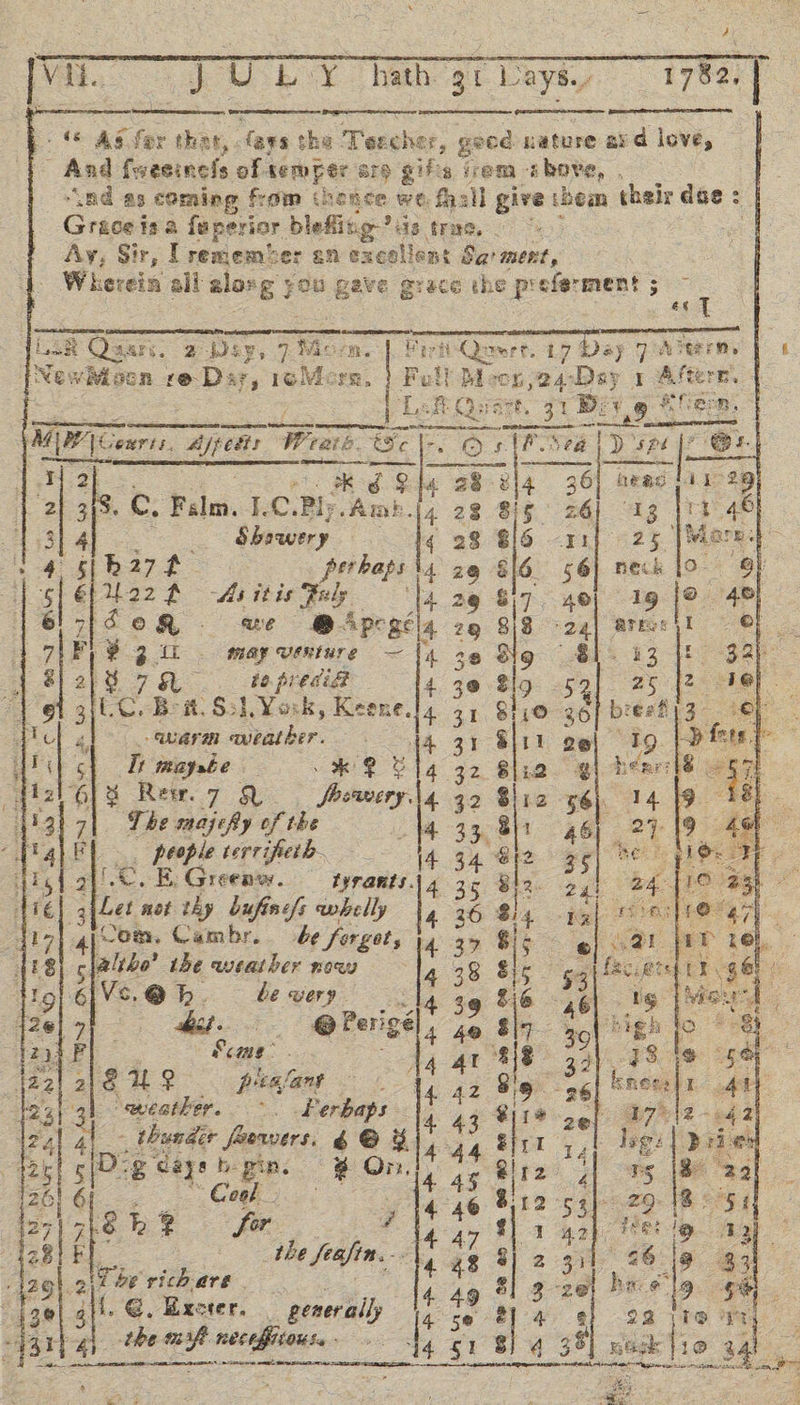 VII. JULY hath 31 Days. 1782.
“ As for that, ſays the Teacher, good nature and love,
And ſweetneſs of temper are gifts from above,
And as coming from thence we ſhall give them their due :
Grace is a ſuperior bleſſing 'tis true.
Ay, Sir, I remember an excellent Sarment,
Wherein all along you gave grace the preferment ;
“ I
Laſt Quart. 2 Day, 7 Morn. | Firſt Quart. 17 Day 7 Aftern.
New Moon 10 Day, 10 Morn. | Full Moon, 24 Day 1 Aftern.
Laſt Quart. 31 Day, 9 Aftern.
M|W|Courts, Aſpects Weath. &c |r. ☉ s.|F.Sea|☽'s pl
1 2 ⚹ ♂ ♀ 4 28 8 4 36 head 11 29
2 3 S. C. Falm. I.C.Ply.Amh. 4 28 8 5 26 13 11 46
3 4 Showery 4 28 8 6 11 25 Morn.
4 5 ♄ 27 perhaps 4 29 8 6 56 neck 0 9
5 6 22 As it is July 4 29 8 7 40 19 0 40
6 7 we @ Apogé 4 29 8 8 24 arms 1 0
7 F may venture 4 30 8 9 8 13 1 32
8 2 ☿ 7 ♌ to predict 4 30 8 9 52 25 2 10
9 3 I.C. B Sal. York, Keene. 4 31 8 10 36 breaſt 3 0
10 4 warm weather. 4 31 8 11 20 19 ☽ ſets
11 5 It may be 4 32 8 12 8 heart 8 57
12 6 ☿ Retr. 7 ♌ ſhowery. 4 32 8 12 56 14 9 18
13 7 The majeſty of the 4 33 8 1 46 27 9 40
14 F people terrifieth 4 34 8 2 35
15 2 I.C. E. Greenw. tyrants. 4 35 8 3 24 24 10 23
16 3 Let not thy buſineſs wholly 4 36 8 4 12 10 47
17 4 Com. Cambr. be forgot, 4 37 8 5 0 21 11 10
18 5 altho' the weather now 4 38 8 5 53 ſecrets 11 36
19 6 Vc. @ ♄ be very 4 39 8 6 46 19 Morn
20 7 hot. @ Perigé 4 40 8 7 39 thigh 0 8
21 F Some 4 41 8 8 32 18 0 50
22 2 8 ♅ ♀ pleaſant 4 42 8 9 26 knees 1 41
23 3 weather. Perhaps 4 43 8 10 20 17 2 42
24 4 thunder ſhowers. 4 44 8 11 14 legs ☽ riſes
25 5 Dog days begin. ☿ Ori. 4 45 8 12 4 15 8 22
26 6 Cool 4 46 8 12 53 29 8 51
27 7 8 ♄ ♀ for 4 47 8 1 42 feet 9 12
28 F the ſeaſon. 4 48 8 2 31 26 9 33
29 2 The rich are 4 49 8 3 20 9
30 3 I. C. Exeter. generally 4 50 8 4 22 10
31 4 the moſt neceſſitous. 4 51 8 4 38 neck 10 34